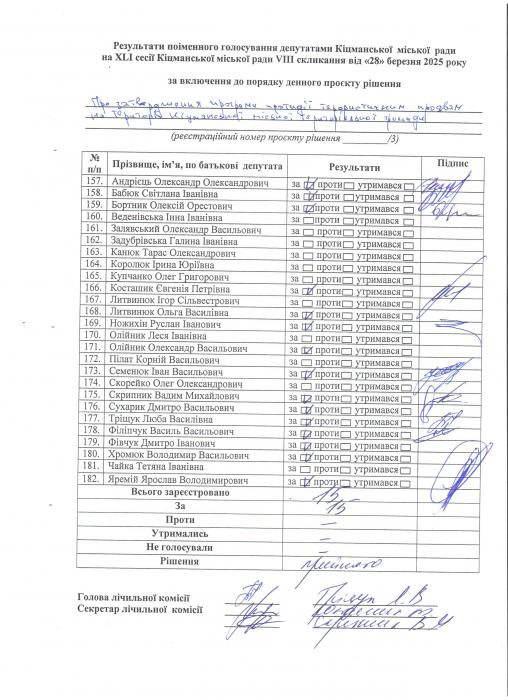 Результати поіменного голосування депутатами Кіцманської міської ради
на XLI сесії Кіцманської міської ради VIII скликання від «28» березня 2025 року
за включення до порядку денного проєкту рішення
Про затвердження програми протидії терористичним проявам
на території Кіцманської міської територіальної громади
(реєстраційний номер проєкту рішення _________/3)
№ п/п Прізвище, ім’я, по батькові депутата Результати Підпис
157. Андрієць Олександр Олександрович за проти утримався
158. Бабюк Світлана Іванівна за проти утримався
159. Бортник Олексій Орестович за проти утримався
160. Веденівська Інна Іванівна за проти утримався
161. Залявський Олександр Васильович за проти утримався
162. Задубрівська Галина Іванівна за проти утримався
163. Канюк Тарас Олександрович за проти утримався
164. Королюк Ірина Юріївна за проти утримався
165. Купчанко Олег Григорович за проти утримався
166. Косташик Євгенія Петрівна за проти утримався
167. Литвинюк Ігор Сільвестрович за проти утримався
168. Литвинюк Ольга Василівна за проти утримався
169. Ножихін Руслан Іванович за проти утримався
170. Олійник Леся Іванівна за проти утримався
171. Олійник Олександр Васильович за проти утримався
172. Пілат Корній Васильович за проти утримався
173. Семенюк Іван Васильович за проти утримався
174. Скорейко Олег Олександрович за проти утримався
175. Скрипник Вадим Михайлович за проти утримався
176. Сухарик Дмитро Васильович за проти утримався
177. Тріщук Люба Василівна за проти утримався
178. Філіпчук Василь Васильович за проти утримався
179. Фівчук Дмитро Іванович за проти утримався
180. Хромюк Володимир Васильович за проти утримався
181. Чайка Тетяна Іванівна за проти утримався
182. Яремій Ярослав Володимирович за проти утримався
Всього зареєстровано 15
За 15
Проти –
Утримались –
Не голосували –
Рішення прийнято
Голова лічильної комісії
Секретар лічильної комісії